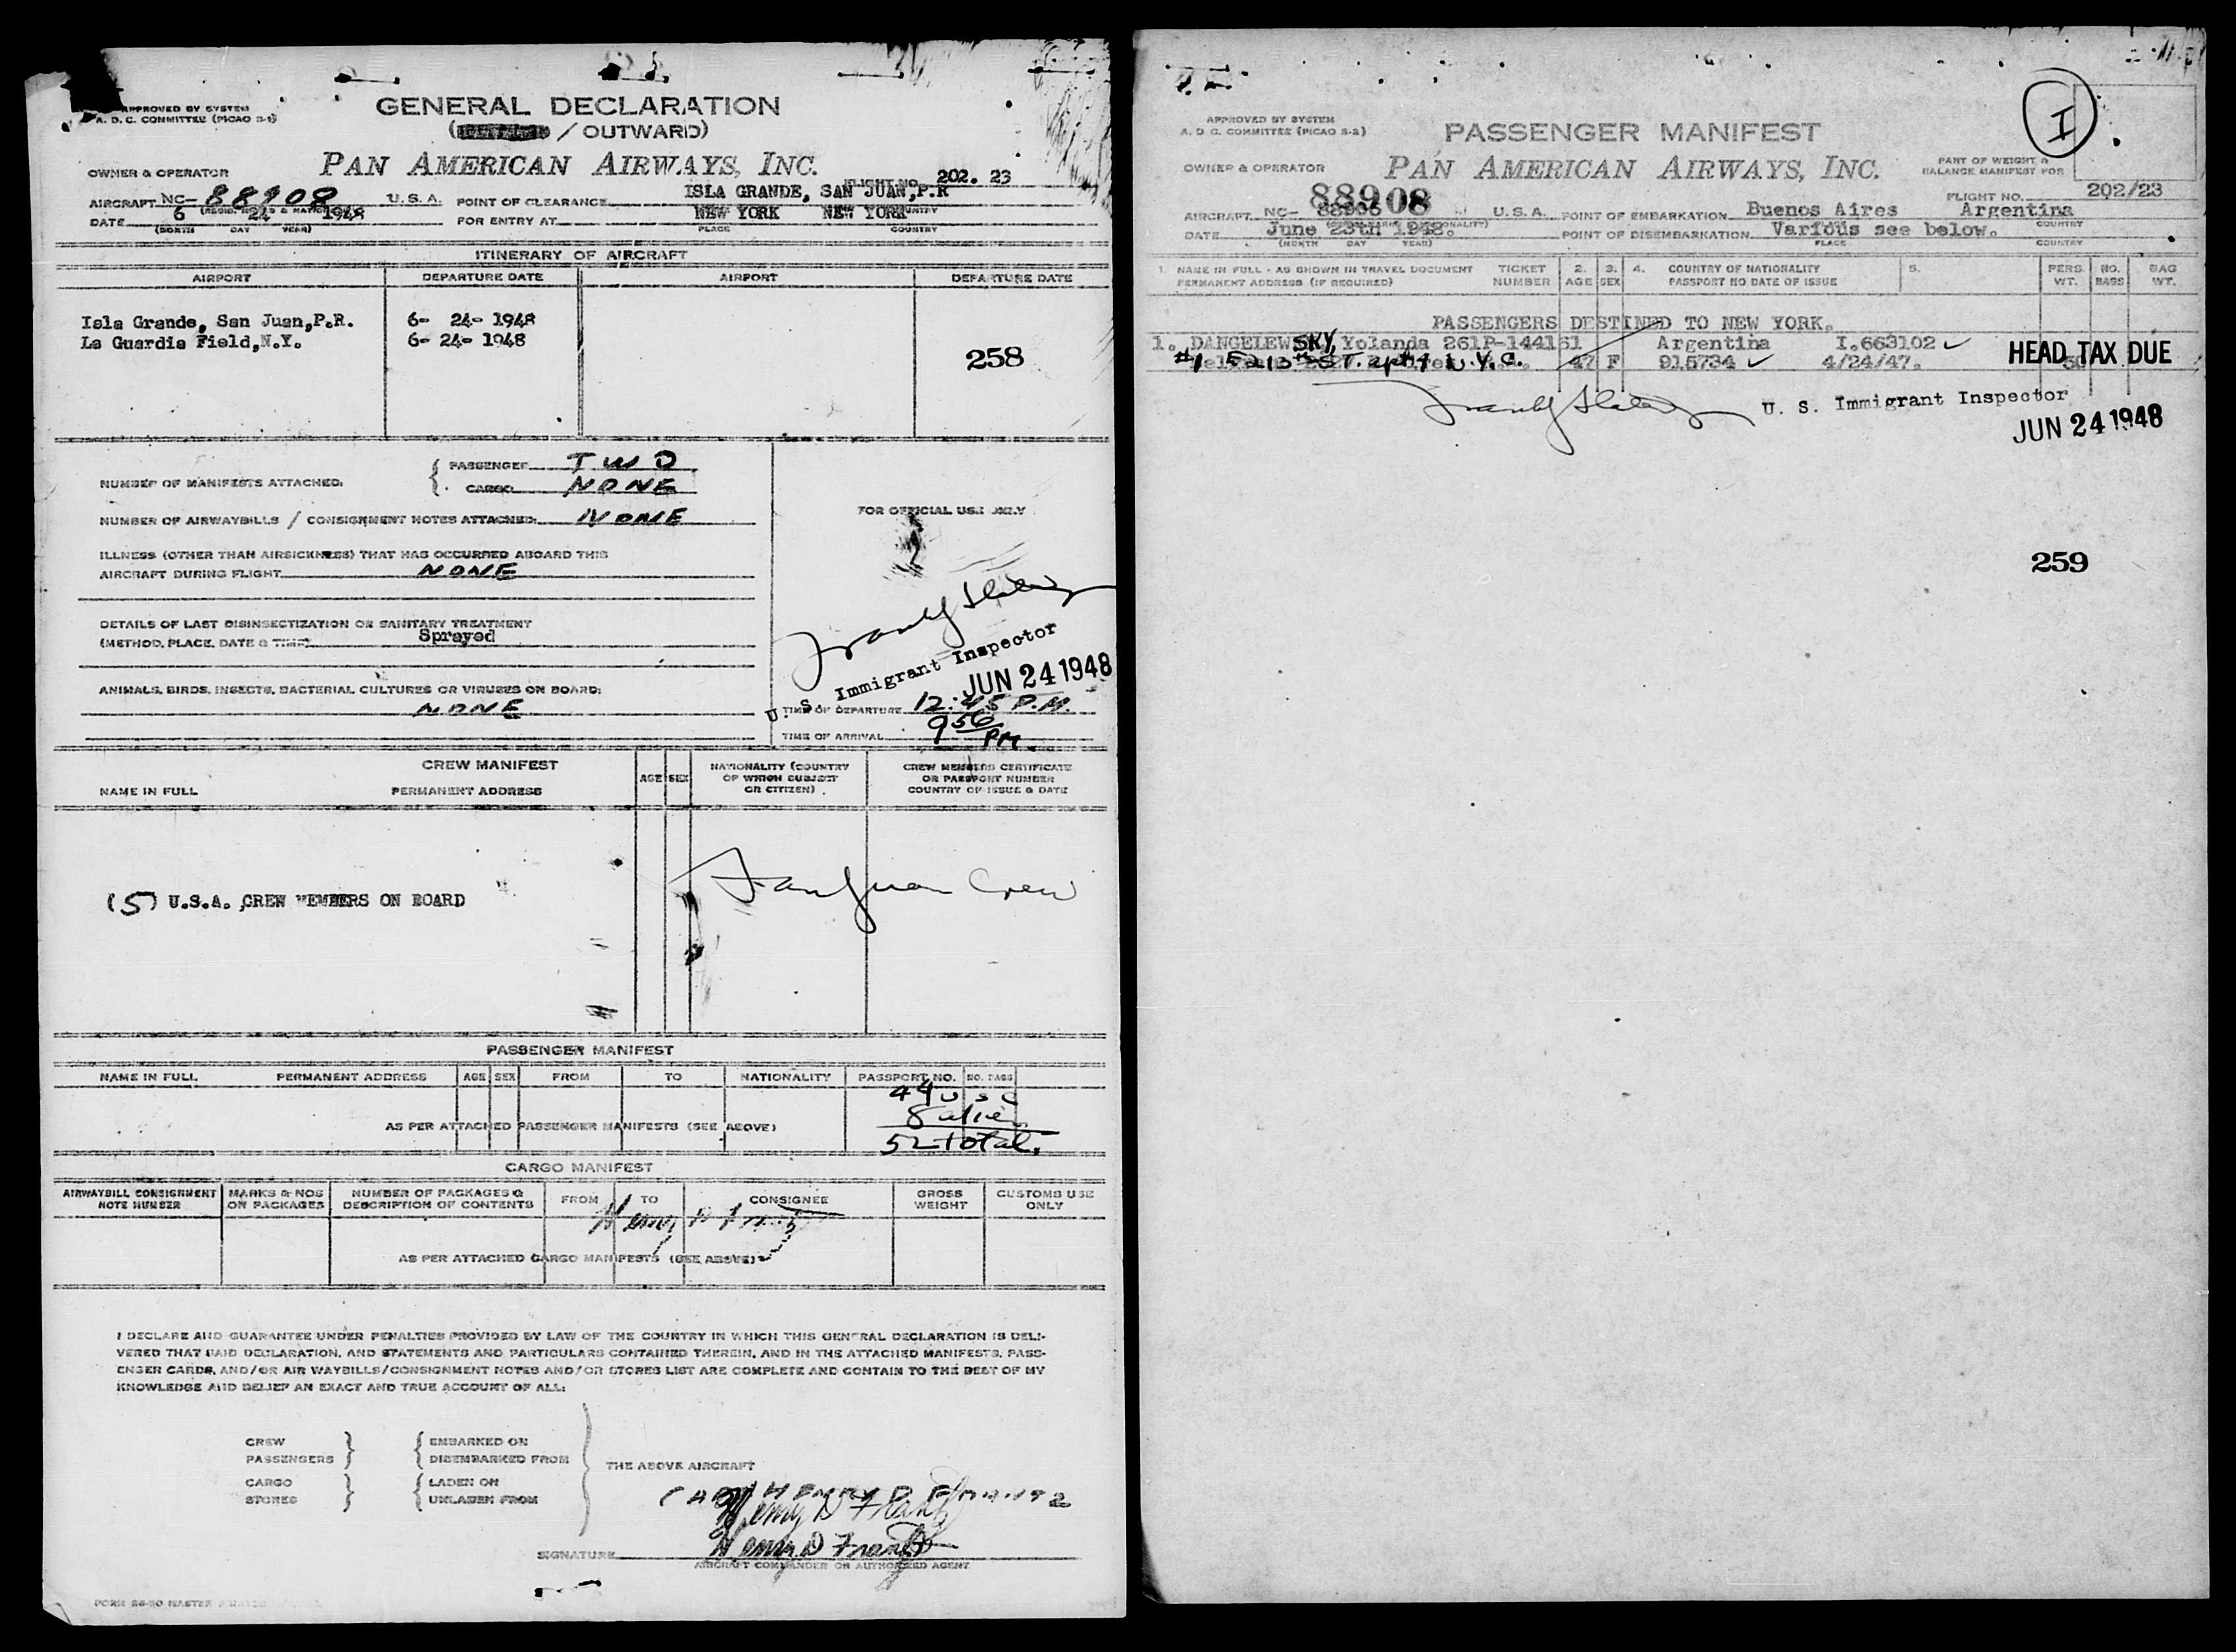 APPROVED BY SYSTEM
A. D. C. COMMITTEE (PICAO S-1)
GENERAL DECLARATION
( / OUTWARD)
OWNER & OPERATOR PAN AMERICAN AIRWAYS, INC.
FLIGHT NO. 202. 23
AIRCRAFT NC- 88908 U. S. A. POINT OF CLEARANCE ISLA GRANDE, SAN JUAN,P.R
DATE 6 24 1948 FOR ENTRY AT NEW YORK NEW YORK
(MONTH DAY YEAR) PLACE COUNTRY
ITINERARY OF AIRCRAFT
AIRPORT DEPARTURE DATE AIRPORT DEPARTURE DATE
Isla Grande, San Juan,P.R. 6- 24- 1948
La Guardia Field,N.Y. 6- 24- 1948
258
NUMBER OF MANIFESTS ATTACHED: { PASSENGER TWO
CARGO NONE
NUMBER OF AIRWAYBILLS / CONSIGNMENT NOTES ATTACHED: NONE
FOR OFFICIAL USE ONLY
ILLNESS (OTHER THAN AIRSICKNESS) THAT HAS OCCURRED ABOARD THIS
AIRCRAFT DURING FLIGHT NONE
DETAILS OF LAST DISINSECTIZATION OR SANITARY TREATMENT
(METHOD, PLACE, DATE & TIME) Sprayed
U. S. Immigrant Inspector
JUN 24 1948
ANIMALS, BIRDS, INSECTS, BACTERIAL CULTURES OR VIRUSES ON BOARD:
NONE
TIME OF DEPARTURE 12:45 P.M.
TIME OF ARRIVAL 956 PM
CREW MANIFEST
NAME IN FULL PERMANENT ADDRESS AGE SEX NATIONALITY (COUNTRY OF WHICH SUBJECT OR CITIZEN) CREW MEMBERS CERTIFICATE OR PASSPORT NUMBER COUNTRY OF ISSUE & DATE
(5) U.S.A. CREW MEMBERS ON BOARD
San Juan Crew
PASSENGER MANIFEST
NAME IN FULL PERMANENT ADDRESS AGE SEX FROM TO NATIONALITY PASSPORT NO. NO. BAGS
44 USC
8 alien
AS PER ATTACHED PASSENGER MANIFESTS (SEE ABOVE)
52 total.
CARGO MANIFEST
AIRWAYBILL CONSIGNMENT NOTE NUMBER MARKS & NOS ON PACKAGES NUMBER OF PACKAGES & DESCRIPTION OF CONTENTS FROM TO CONSIGNEE GROSS WEIGHT CUSTOMS USE ONLY
AS PER ATTACHED CARGO MANIFESTS (SEE ABOVE)
I DECLARE AND GUARANTEE UNDER PENALTIES PROVIDED BY LAW OF THE COUNTRY IN WHICH THIS GENERAL DECLARATION IS DELI-
VERED THAT SAID DECLARATION, AND STATEMENTS AND PARTICULARS CONTAINED THEREIN, AND IN THE ATTACHED MANIFESTS, PASS-
ENGER CARDS, AND/OR AIR WAYBILLS/CONSIGNMENT NOTES AND/OR STORES LIST ARE COMPLETE AND CONTAIN TO THE BEST OF MY
KNOWLEDGE AND BELIEF AN EXACT AND TRUE ACCOUNT OF ALL:
CREW EMBARKED ON
PASSENGERS DISEMBARKED FROM
THE ABOVE AIRCRAFT
CARGO LADEN ON
STORES UNLADEN FROM
Henry D Frantz
SIGNATURE Henry D Frantz
AIRCRAFT COMMANDER OR AUTHORIZED AGENT
APPROVED BY SYSTEM
A. D. C. COMMITTEE (PICAO S-2)
I
PASSENGER MANIFEST
OWNER & OPERATOR PAN AMERICAN AIRWAYS, INC.
PART OF WEIGHT &
BALANCE MANIFEST FOR
FLIGHT NO. 202/23
AIRCRAFT NC- 88908 U. S. A. POINT OF EMBARKATION Buenos Aires Argentina
DATE June 23th 1948. POINT OF DISEMBARKATION Various see below.
(MONTH DAY YEAR) PLACE COUNTRY
1. NAME IN FULL - AS SHOWN IN TRAVEL DOCUMENT TICKET 2. 3. 4. COUNTRY OF NATIONALITY 5. PERS. NO. BAG
PERMANENT ADDRESS (IF REQUIRED) NUMBER AGE SEX PASSPORT NO DATE OF ISSUE WT. BAGS WT.
PASSENGERS DESTINED TO NEW YORK.
1. DANGELEWSKY, Yolanda 261P-144161 Argentina I.663102
47 F 915734 4/24/47.
HEAD TAX DUE
U. S. Immigrant Inspector
JUN 24 1948
259